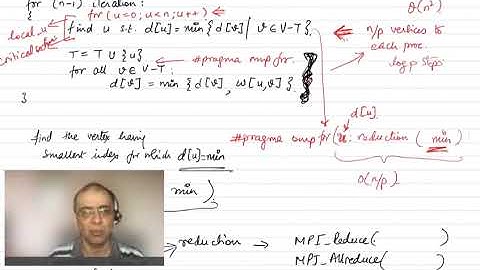 for (n-1) iteration:
{ for(u=0; u<n; u++) θ(n²)
local_u find u s.t. d[u]=min{d[v] | v ∈ V-T}. n/p vertices to
critical each proc.
T = T ∪ {u} #pragma omp for. log p steps
for all v ∈ V-T:
d[v] = min {d[v], w[u,v]}.
}
d[u]
find the vertex having #pragma omp for (u: reduction (min)
smallest index for which d[u]=min
O(n/p)
min).
reduction MPI_Reduce( )
MPI_Allreduce( )